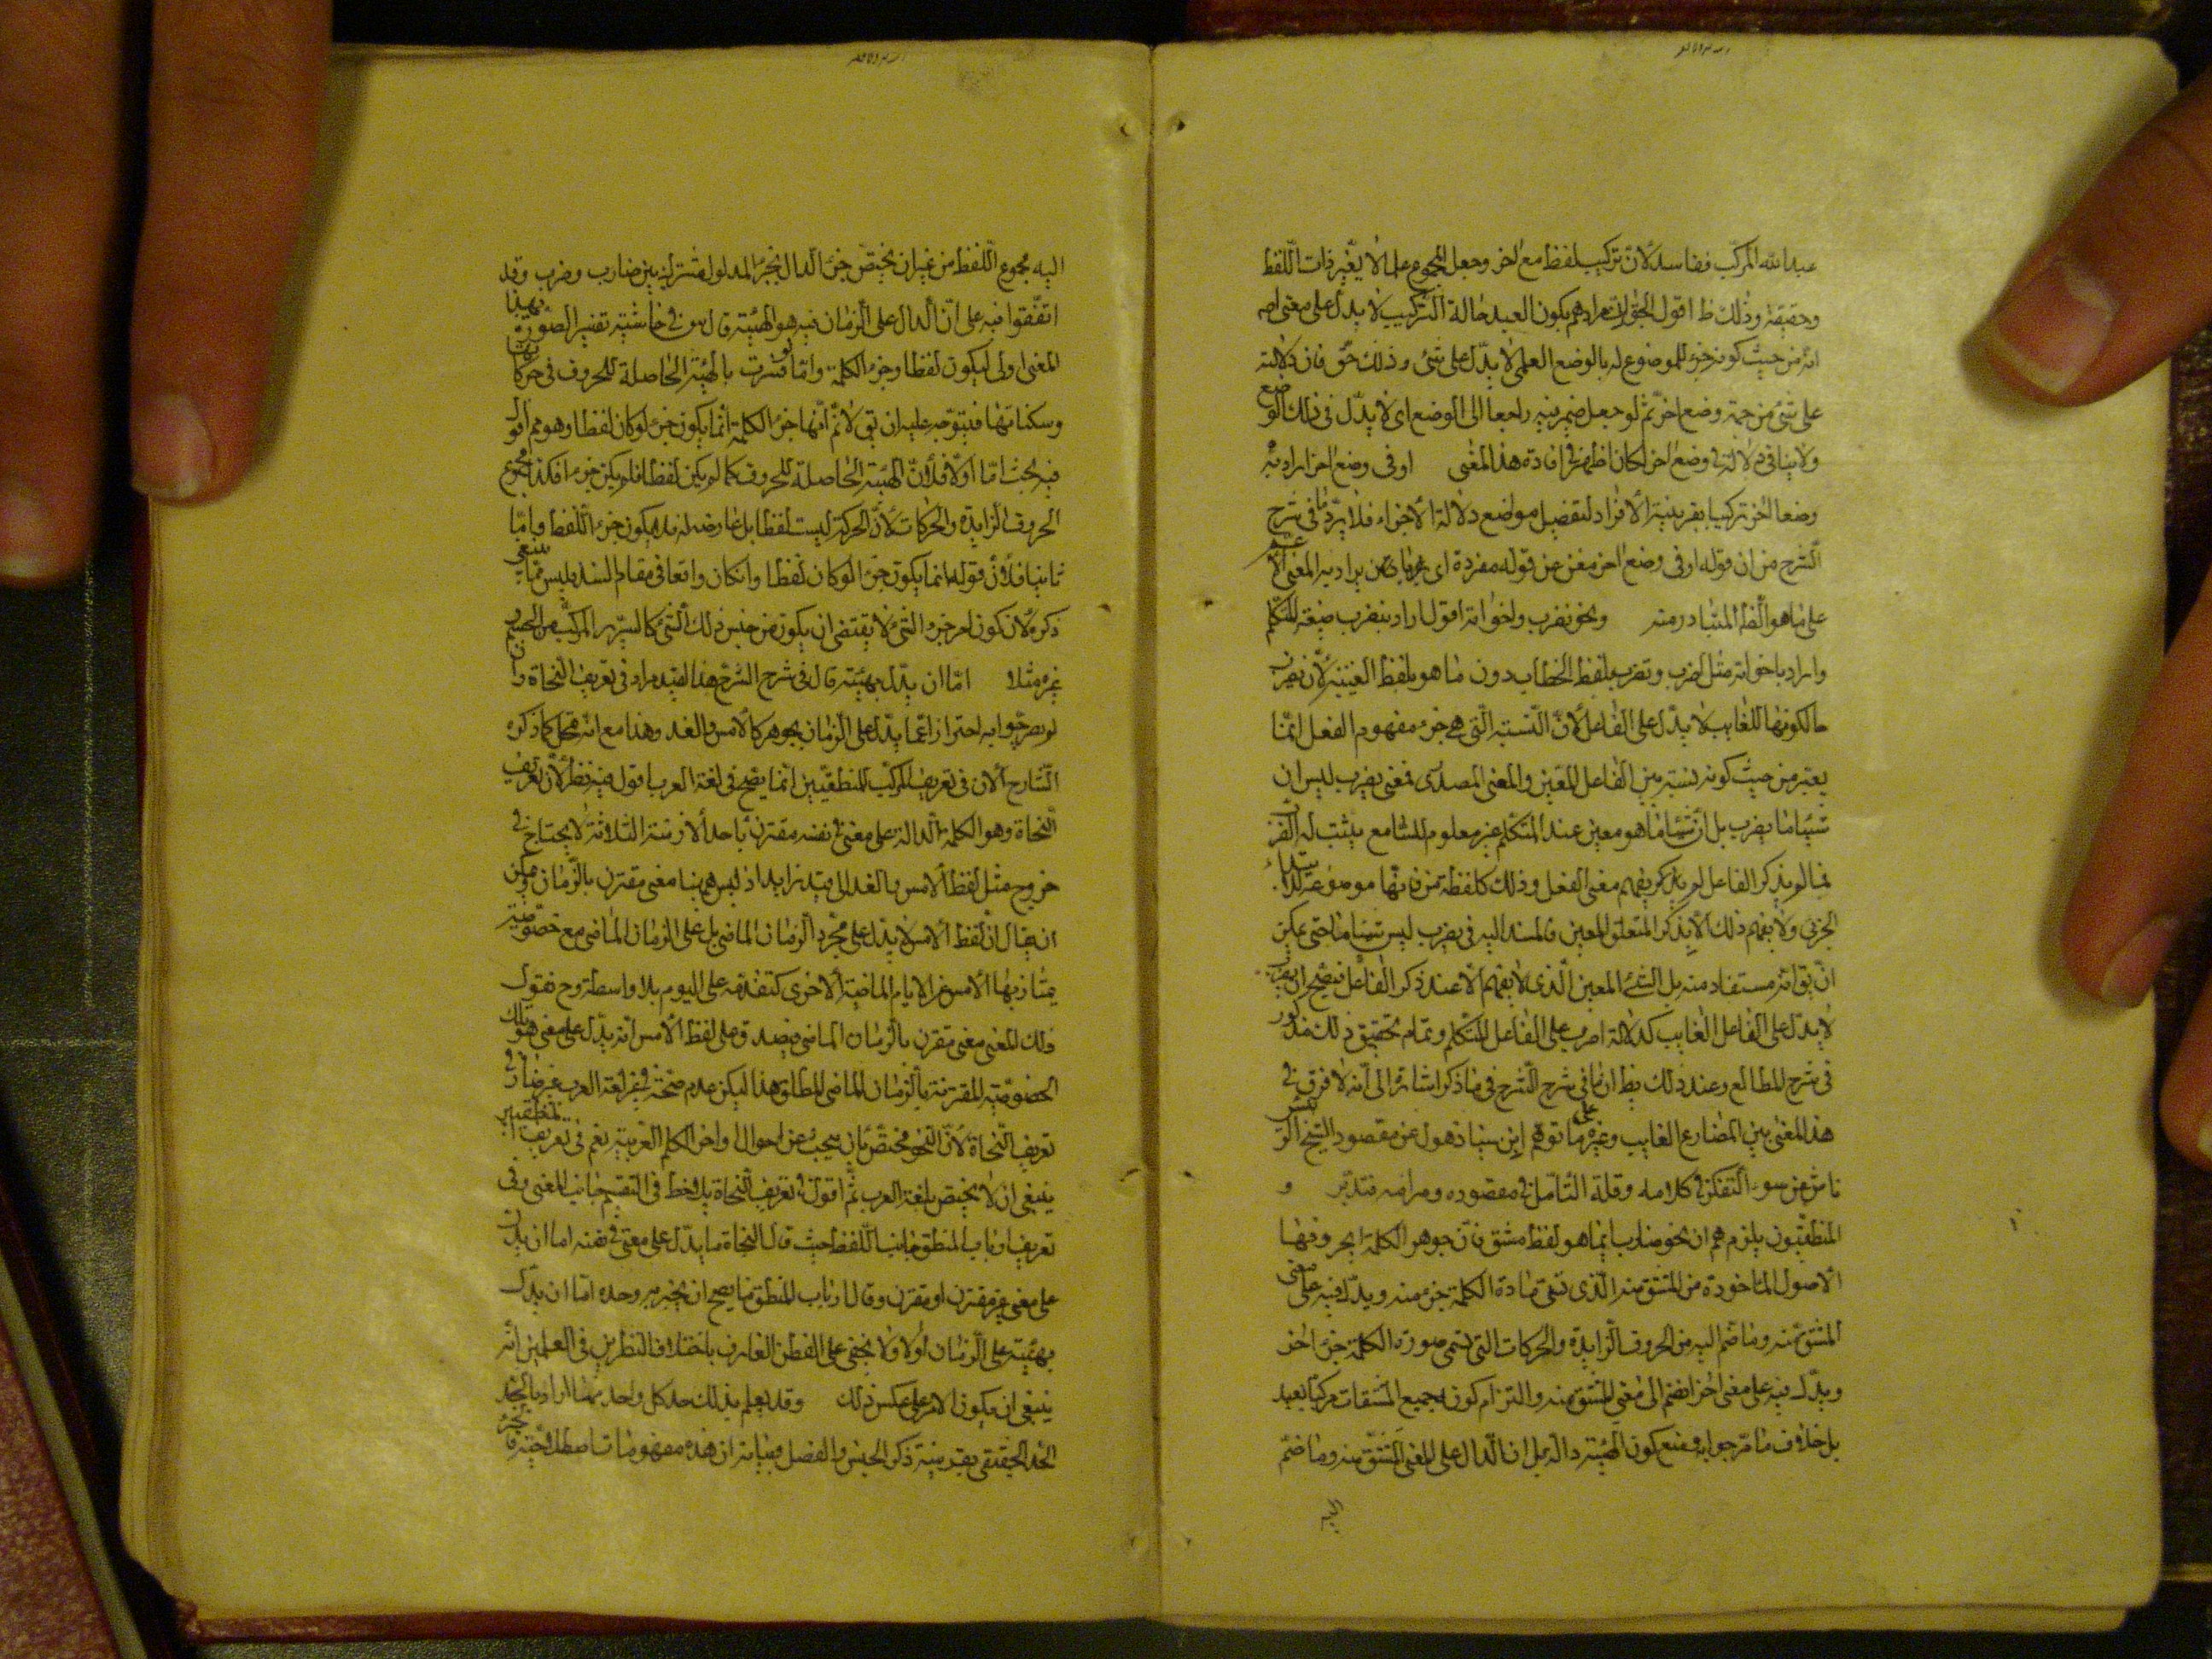 عبد الله المركب ففاسد لأنّ تركيب لفظ مع اخر وجعل المجموع علما لا يغير ذات اللّفظ
وحقيقته وذلك ظ اقول الحق ان مرادهم بكون العبد حالة التركيب لا يدل على معنى اصلا
انه من حيث كونه جزء للموضوع له بالوضع العلمى لا يدل على شئ وذلك حق فان دلالته
على شئ من جهة وضع اخر ثم لو جعل ضمير فيه راجعا الى الوضع اى لا يدل فى ذلك الوضع
ولا ينافى دلالته فى وضع اخر لكان اظهر فى افادة هذا المعنى او فى وضع اخر اراد به
وضعا اخر تركيبا بقرينة الافراد لتفصيل مواضع دلالة الاجزاء فلا يرد ما فى شرح
الشرح من ان قوله او فى وضع اخر مغن عن قوله مفردة اى يراد به المعنى الاعم
على ما هو الظ المتبادر منه ونحو نضرب واخواته اقول اراد بنضرب صيغة المتكلم
واراد باخواته مثل اضرب وتضرب بلفظ الخطاب دون ما هو بلفظ الغيبة لأن يضرب
حالكونها للغايب لا يدل على الفاعل لأنّ النسبة الّتى هى جزء مفهوم الفعل انّما
يعتبر من حيث كونه نسبة بين الفاعل المعين والمعنى المصدرى فمعنى يضرب ليس ان
شيئا ما يضرب بل ان شيئا ما هو معين عند المتكلم غير معلوم للسامع يثبت له الضرب
فما لم يذكر الفاعل لم يفهم معنى الفعل وذلك كلفظة من فانّها موضوعة لابتداء
الجزئى ولا يفهم ذلك الا بذكر المتعلق المعين فالمسند اليه فى يضرب ليس شيئا ما حتى يمكن
ان يق انه مستفاد منه بل الشئ المعين الّذى لا يفهم الّا عند ذكر الفاعل فيصح ان يضرب
لا يدل على الفاعل الغايب كدلالة اضرب على الفاعل المتكلم وتمام تحقيق ذلك مذكور
فى شرح المطالع وعند ذلك يظ ان ما فى شرح الشرح فى ما ذكر اشارة الى أنه لا فرق فى
هذا المعنى بين المضارع الغايب وغيره على ما توهم ابن سينا ذهول عن مقصود الشيخ الرئيس
ناش من سوء التفكر فى كلامه وقلة التأمل فى مقصوده ومرامه فتدبّر و
المنطقيّون يلزم هم ان نحو ضارب اى مما هو لفظ مشتق فان جوهر الكلمة اى حروفها
الاصول الماخوذة من المشتق منه الّذى تسمّى مادة الكلمة جزء منه ويدل فيه على معنى
المشتق منه وما ضم اليه من الحروف الزايدة والحركات التى تسمى صورة الكلمة جزء اخر
ويدل فيه على معنى اخر انضم الى معنى المشتق منه والتزام كون جميع المشتقات مركبا بعيد
بل خلاف ما مر جوابه منع كون الهيئة دالة بل ان الدال على المعنى المشتق منه وما ضم
اليه
اليه مجموع اللفظ من غير ان يختصّ جزء الدال بجزء المدلول مشترك بين ضارب وضرب وقد
اتفقوا فيه على انّ الدال على الزمان فيه هو الهيئة قال فى حاشيته تفسير الصورة بهذا
المعنى اولى ليكون لفظا وجزء الكلمة واما لو فسرت بالهيئة الحاصلة للحروف فى حركاتها
وسكناتها فيتوجه عليه ان يق لا نم انّها جزء الكلمة انّما يكون جزء لو كان لفظا وهو مم اقول
فيه بحث امّا اولا فلأنّ الهيئة الحاصلة للحروف كما لم يكن لفظا فلم يكن جزء فكذا مجموع
الحروف الزايدة والحركات لأنّ الحركة ليست لفظا بل عارضة له فلا يكون جزء اللفظ وامّا
ثانيا فلأن قوله انما يكون جزء لو كان لفظا وانكان واقعا فى مقام السند فليس مما ينبغى
ذكره لأن كون امر جزء الشئ لا يقتضى ان يكون من جنس ذلك الشئ كالسرير المركب من الخشب
غيره مثلا امّا ان يدل بهيئته قال فى شرح الشرح هذا القيد مراد فى تعريف النحاة وان
لم يصرحوا به احترازا عمّا يدل على الزمان بجوهره كالامس والغد وهذا مع انّه مخل كما ذكره
الشارح الان فى تعريف المركب للمنطقيّين انّما يصح فى لغة العرب اقول فيه نظر لأن تعريف
النحاة وهو الكلمة الدالة على معنى فى نفسه مقترن بأحد الأزمنة الثلاثة لا يحتاج فى
خروج مثل لفظ الامس والغد الى قيد زايد اذ ليس ههنا معنى مقترن بالزمان ويمكن
ان يقال ان لفظ الامس لا يدل على مجرد الزمان الماضى بل على الزمان الماضى مع خصوصيّة
يمتاز بها الامس من الايام الماضية الاخرى كتقدّمه على اليوم بلا واسطة وح نقول
ذلك المعنى معنى مقترن بالزمان الماضى فيصدق على لفظ الامس انّه يدل على معنى هو تلك
الخصوصية المقترنة بالزمان الماضى المطلق هذا ليكن عدم صحّته فى غير لغة العرب غير ضائر فى
تعريف النّحاة لأنّ النحو مختصّ بأن يبحث عن احوال اواخر الكلم العربية نعم فى تعريف المنطقيين
ينبغى ان لا يختص بلغة العرب ثمّ اقول فى تعريف النحاة يلاحظ فى التقسيم جانب المعنى وفى
تعريف ارباب المنطق جانب اللفظ حيث قال النحاة ما يدل على معنى فى نفسه اما ان يدل
على معنى غير مقترن او مقترن وقال ارباب المنطق ما يصح ان يخبر به وحده امّا ان يدل
بهيئته على الزمان أو لا ولا يخفى على الفطن العارف باختلاف النظرين فى العلمين أنّه
ينبغى ان يكون الامر على عكس ذلك وقد يعلم بذلك حد كل واحد منهما اراد بالحد
الحد الحقيقى بقرينة ذكر الجنس والفصل وبيانه ان هذه مفهومات اصطلاحيّة